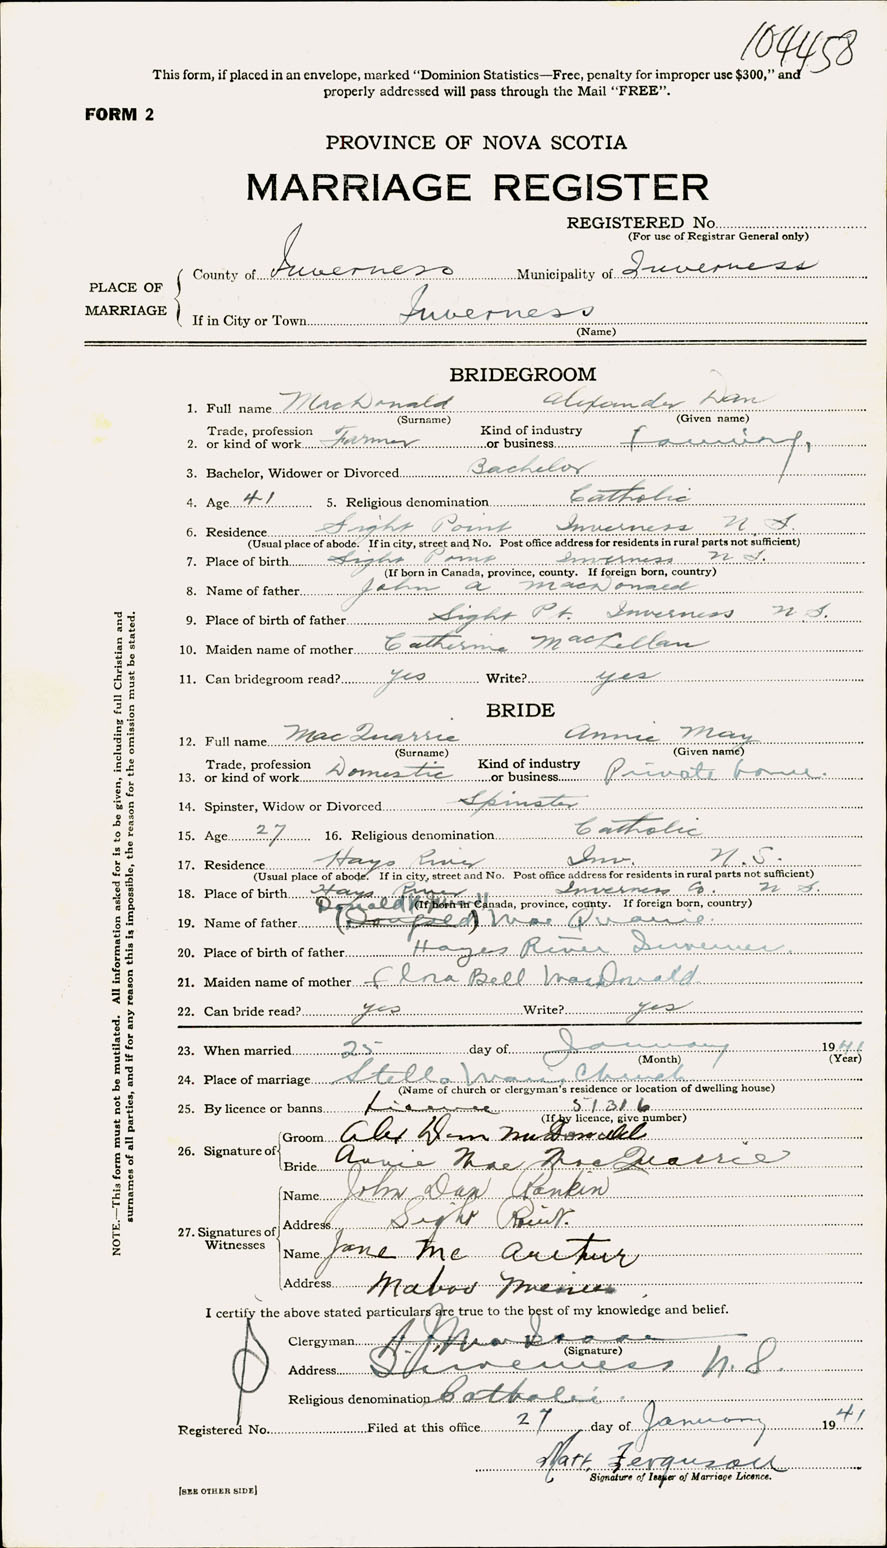 104458
This form, if placed in an envelope, marked "Dominion Statistics—Free, penalty for improper use $300," and
properly addressed will pass through the Mail "FREE".
FORM 2
PROVINCE OF NOVA SCOTIA
MARRIAGE REGISTER
REGISTERED No.
(For use of Registrar General only)
PLACE OF MARRIAGE
County of Inverness Municipality of Inverness
If in City or Town Inverness
(Name)
BRIDEGROOM
1. Full name MacDonald Alexander Dan
(Surname) (Given name)
2. Trade, profession or kind of work Farmer Kind of industry or business Farming
3. Bachelor, Widower or Divorced Bachelor
4. Age 41 5. Religious denomination Catholic
6. Residence Sight Point Inverness N S.
(Usual place of abode. If in city, street and No. Post office address for residents in rural parts not sufficient)
7. Place of birth Sight Point Inverness N S.
(If born in Canada, province, county. If foreign born, country)
8. Name of father John A MacDonald
9. Place of birth of father Sight Pt. Inverness N S.
10. Maiden name of mother Catherine MacLellan
11. Can bridegroom read? yes Write? yes
BRIDE
12. Full name MacQuarrie Annie May
(Surname) (Given name)
13. Trade, profession or kind of work Domestic Kind of industry or business Private home.
14. Spinster, Widow or Divorced Spinster
15. Age 27 16. Religious denomination Catholic
17. Residence Hays River Inv. N.S.
(Usual place of abode. If in city, street and No. Post office address for residents in rural parts not sufficient)
18. Place of birth Hays River Inverness Co. N S
(If born in Canada, province, county. If foreign born, country)
Donald
19. Name of father (Dougald) Mac Quarrie.
20. Place of birth of father Hayes River Inverness.
21. Maiden name of mother Flora Bell MacDonald
22. Can bride read? yes Write? yes
23. When married 25 day of January 1941
(Month) (Year)
24. Place of marriage Stella Maris Church
(Name of church or clergyman's residence or location of dwelling house)
25. By licence or banns Licence 51316
(If by licence, give number)
26. Signature of
Groom Alex Dan MacDonald
Bride Annie Mae MacQuarrie
27. Signatures of Witnesses
Name John Dan Rankin
Address Sight Point.
Name Jane Mc Arthur
Address Mabou
I certify the above stated particulars are true to the best of my knowledge and belief.
Clergyman
(Signature)
Address Inverness N.S.
Religious denomination Catholic.
Registered No. Filed at this office 27 day of January 1941
Mart. Ferguson
Signature of Issuer of Marriage Licence.
[SEE OTHER SIDE]
NOTE.—This form must not be mutilated. All information asked for is to be given, including full Christian and
surnames of all parties, and if for any reason this is impossible, the reason for the omission must be stated.